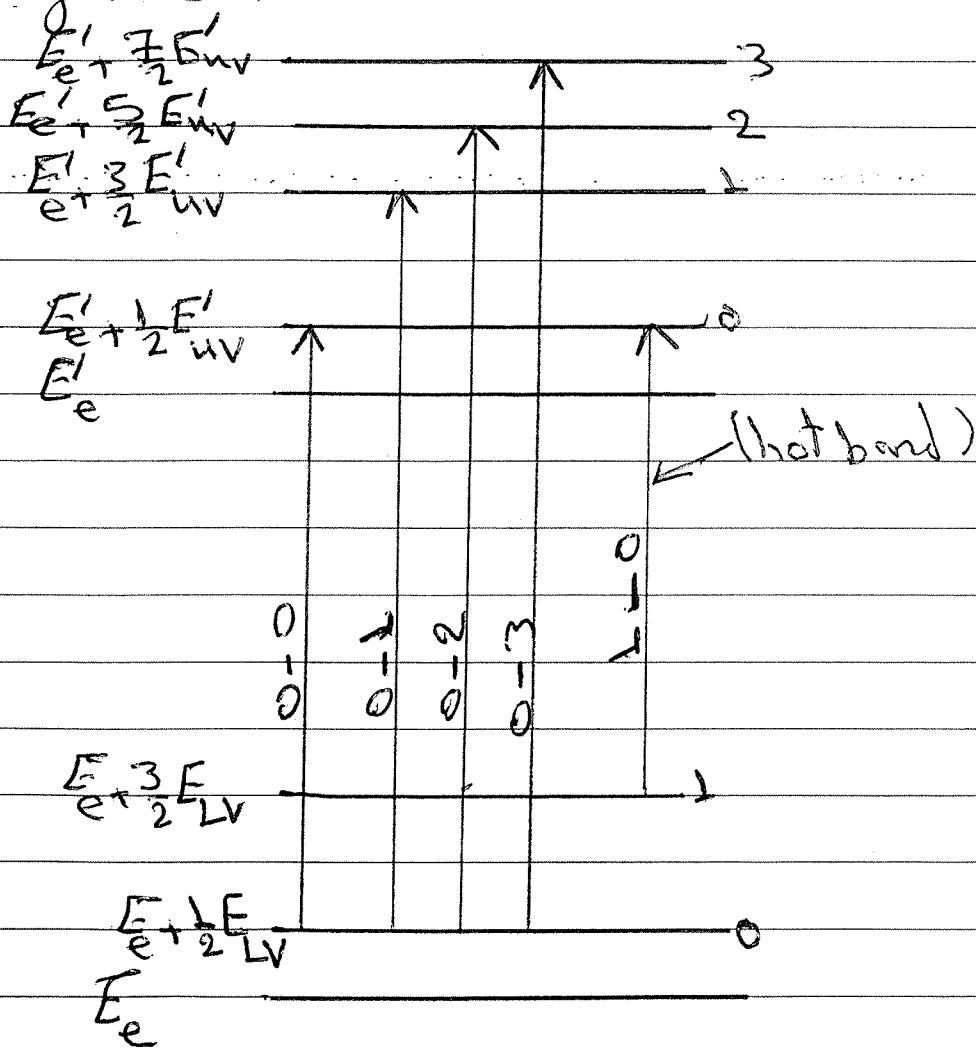 E'e + 7/2 E'uv 3
E'e + 5/2 E'uv 2
E'e + 3/2 E'uv 1
E'e + 1/2 E'uv 0
E'e
(hot band)
0-0 0-1 0-2 0-3 1-0
Ee + 3/2 ELV 1
Ee + 1/2 ELV 0
Ee